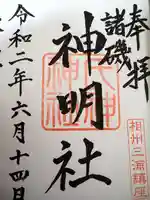 奉拝
諸磯
神明社
令和二年六月十四日
相州三浦鎮座